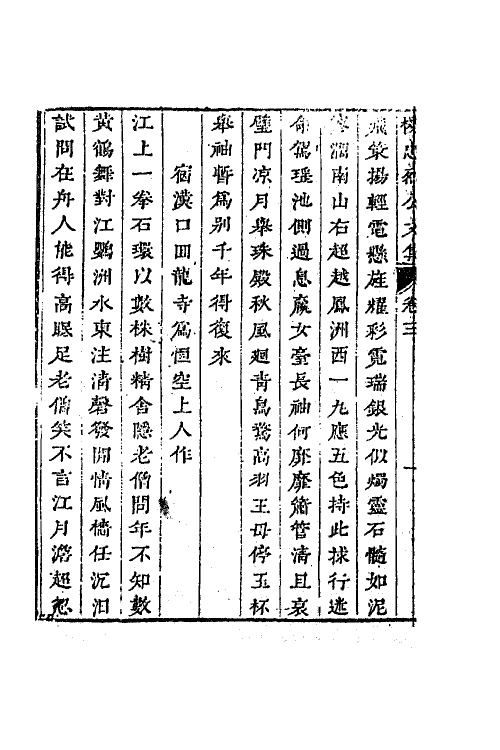 公文集 卷三
飛策揚輕電懸旌耀彩霓瑞銀光似燭靈石髓如泥
澗南山右超越鳳洲西一九應五色持此採行迷
命駕瑤池側過息嬴女臺長袖何靡靡簫管清且哀
璧門凉月舉珠殿秋風廻青鳥驚高羽王母停玉杯
舉袖暫爲别千年得復來
宿漢口回龍寺爲恒空上人作
江上一拳石環以數株樹精舍隱老僧問年不知數
黃鶴舞對江鸚洲水東注清磬發閒情風檣任沉泪
試問在舟人能得高眠足老僧笑不言江月澹超忽